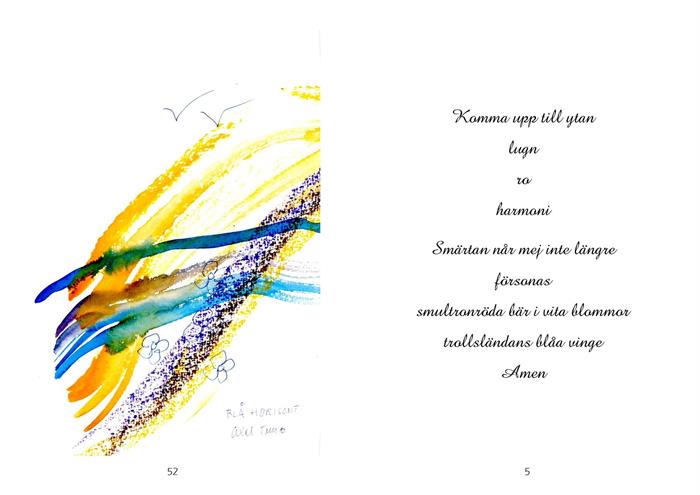 BLÅ HORISONT
52
Komma upp till ytan
lugn
ro
harmoni
Smärtan når mej inte längre
försonas
smultronröda bär i vita blommor
trollsländans blåa vinge
Amen
5